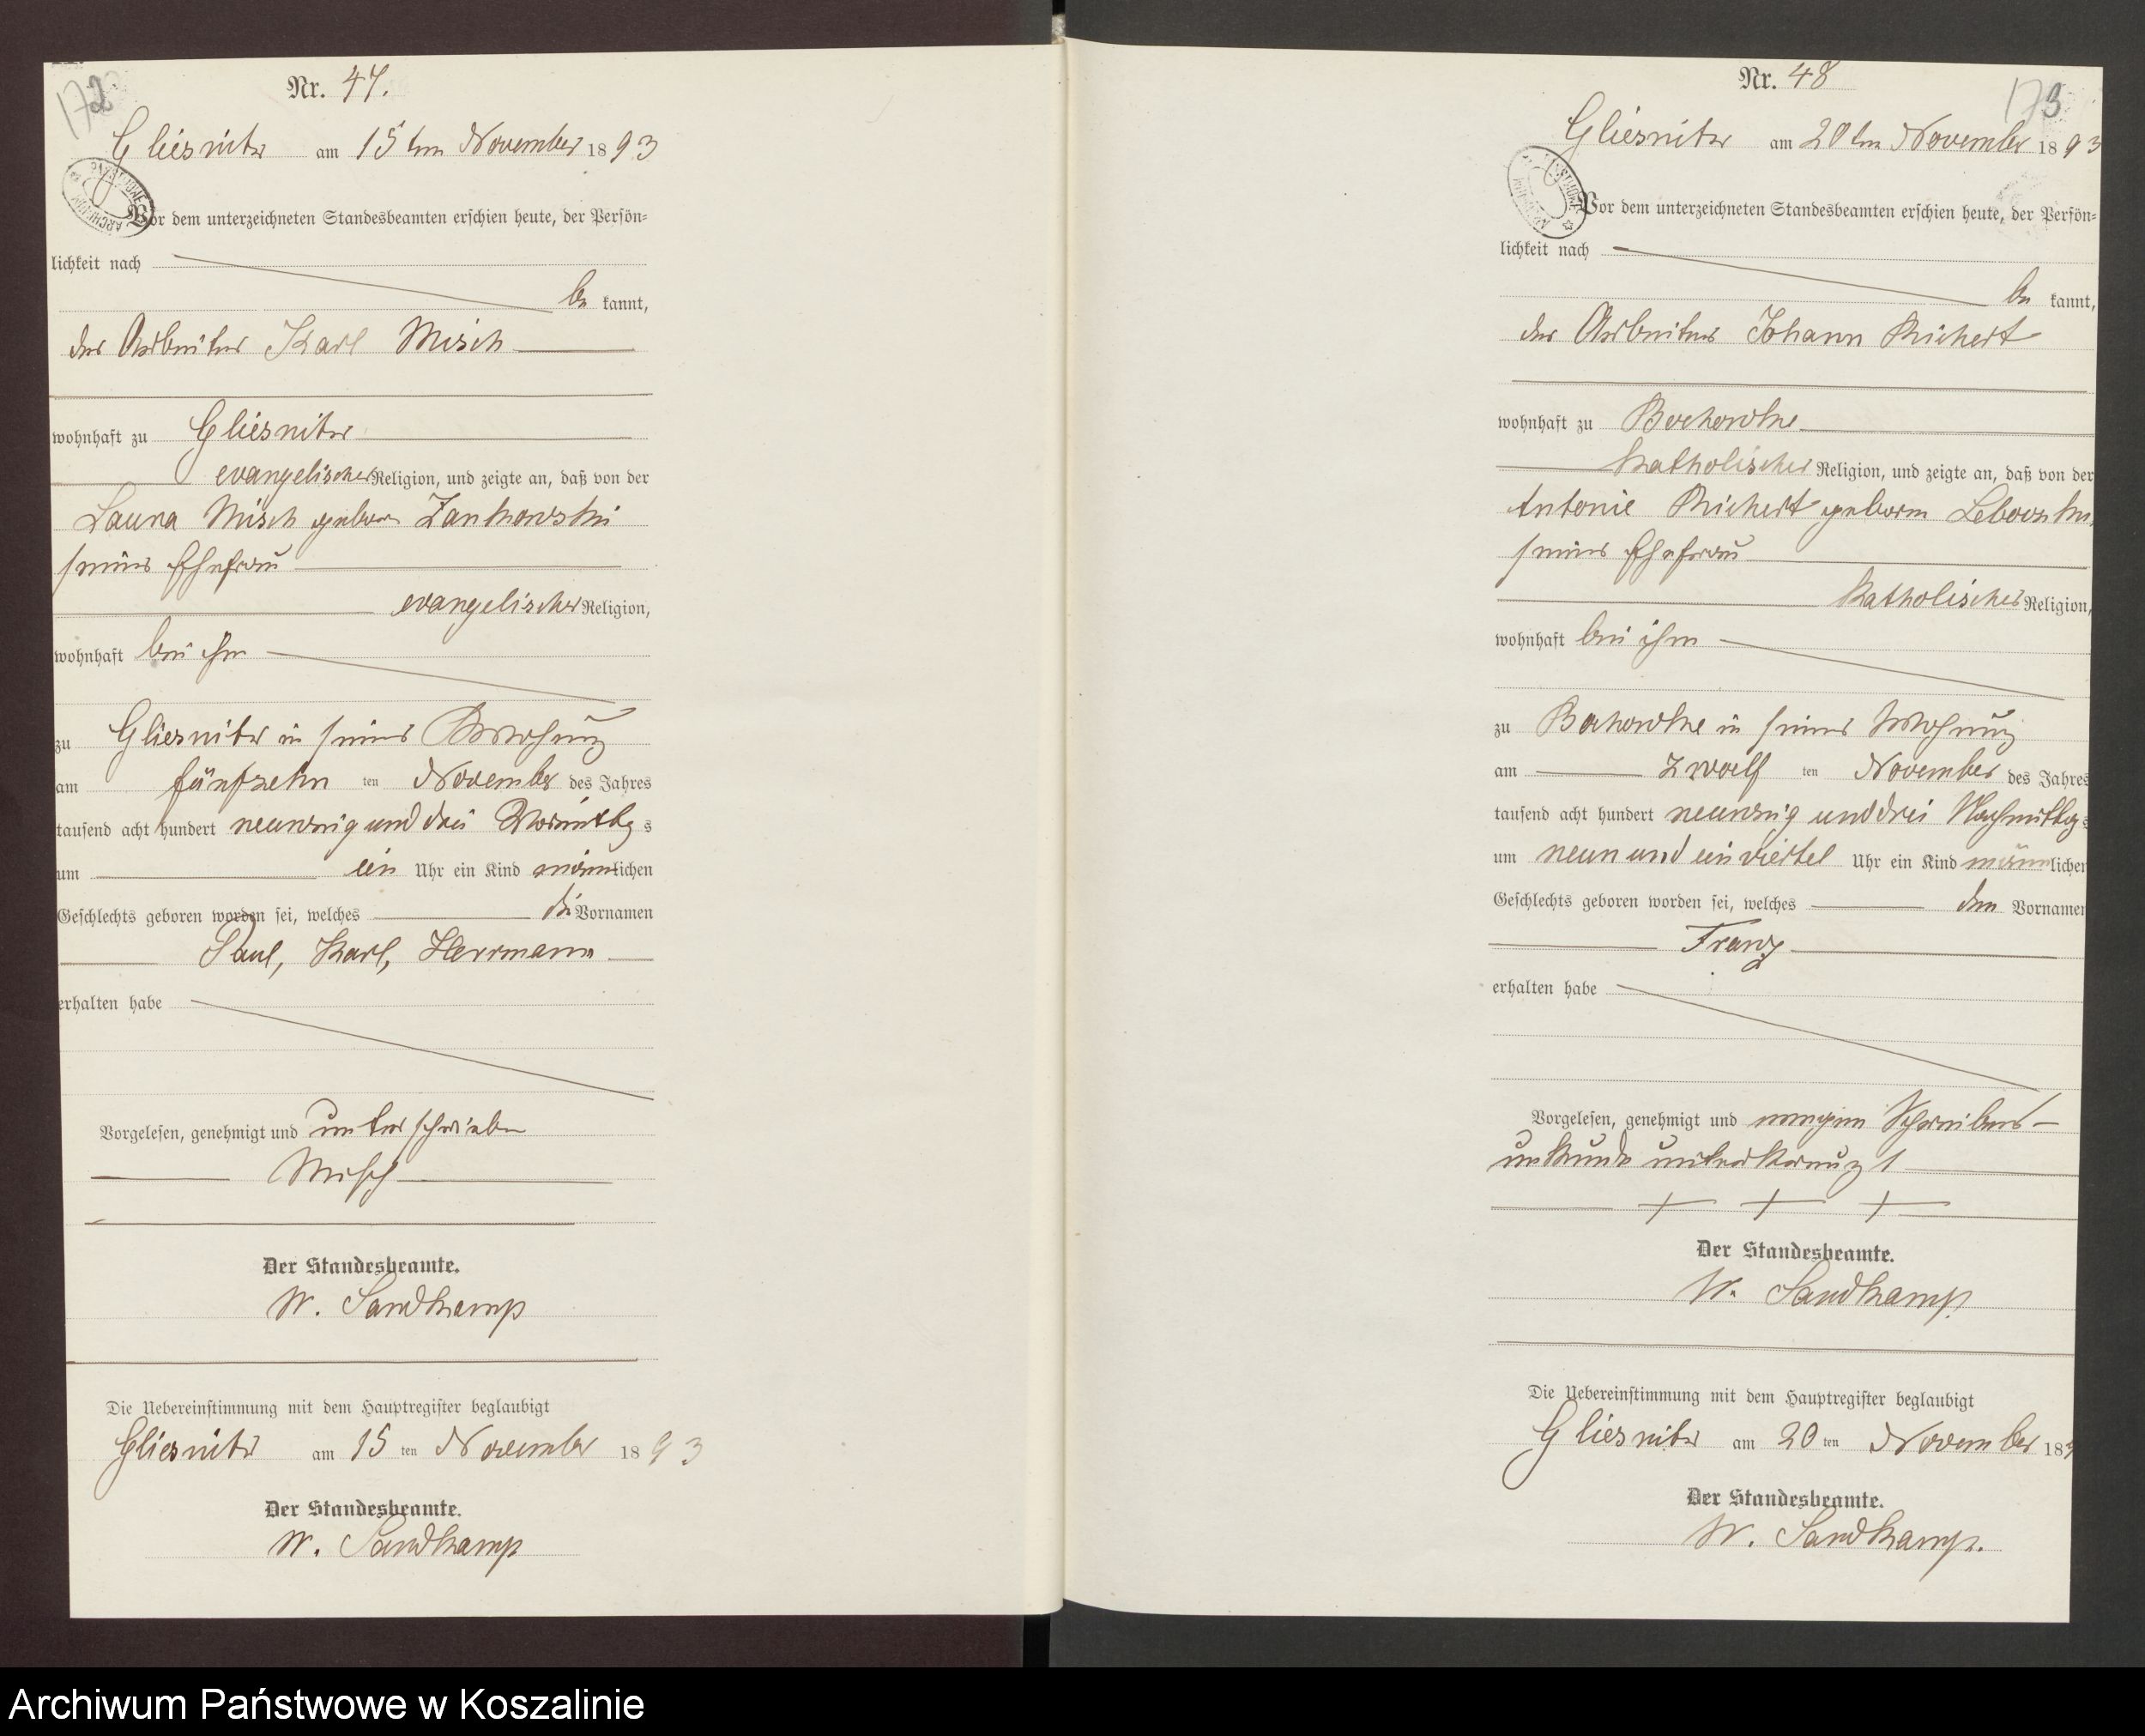 172
Nr. 47.
Gliesnitz am 15ten November 1893
Vor dem unterzeichneten Standesbeamten erschien heute, der Persön-
lichkeit nach
be kannt,
der Arbeiter Karl Misch
wohnhaft zu Gliesnitz
evangelischer Religion, und zeigte an, daß von der
Laura Misch geboren Zankowski
seiner Ehefrau
evangelischer Religion,
wohnhaft bei ihm
zu Gliesnitz in seiner Wohnung
am fünfzehn ten November des Jahres
tausend acht hundert neunzig und drei Vormittag s
um ein Uhr ein Kind männlichen
Geschlechts geboren worden sei, welches die Vornamen
Paul, Karl, Herrmann
erhalten habe
Vorgelesen, genehmigt und unterschrieben
Misch
Der Standesbeamte.
W. Sandkamp
Die Uebereinstimmung mit dem Hauptregister beglaubigt
Gliesnitz am 15 ten November 1893
Der Standesbeamte.
W. Sandkamp
173
Nr. 48
Gliesnitz am 20ten November 1893
Vor dem unterzeichneten Standesbeamten erschien heute, der Persön-
lichkeit nach
be kannt,
der Arbeiter Johann Richert
wohnhaft zu
katholischer Religion, und zeigte an, daß von der
Antonie Richert geboren
seiner Ehefrau
katholischer Religion,
wohnhaft bei ihm
zu in seiner Wohnung
am zwoelf ten November des Jahres
tausend acht hundert neunzig und drei Nachmittag s
um neun und ein viertel Uhr ein Kind männlichen
Geschlechts geboren worden sei, welches den Vornamen
Franz
erhalten habe
Vorgelesen, genehmigt und wegen Schreibens-
unkunde unterkreuzt
+ + +
Der Standesbeamte.
W. Sandkamp
Die Uebereinstimmung mit dem Hauptregister beglaubigt
Gliesnitz am 20 ten November 189
Der Standesbeamte.
W. Sandkamp.
Archiwum Państwowe w Koszalinie